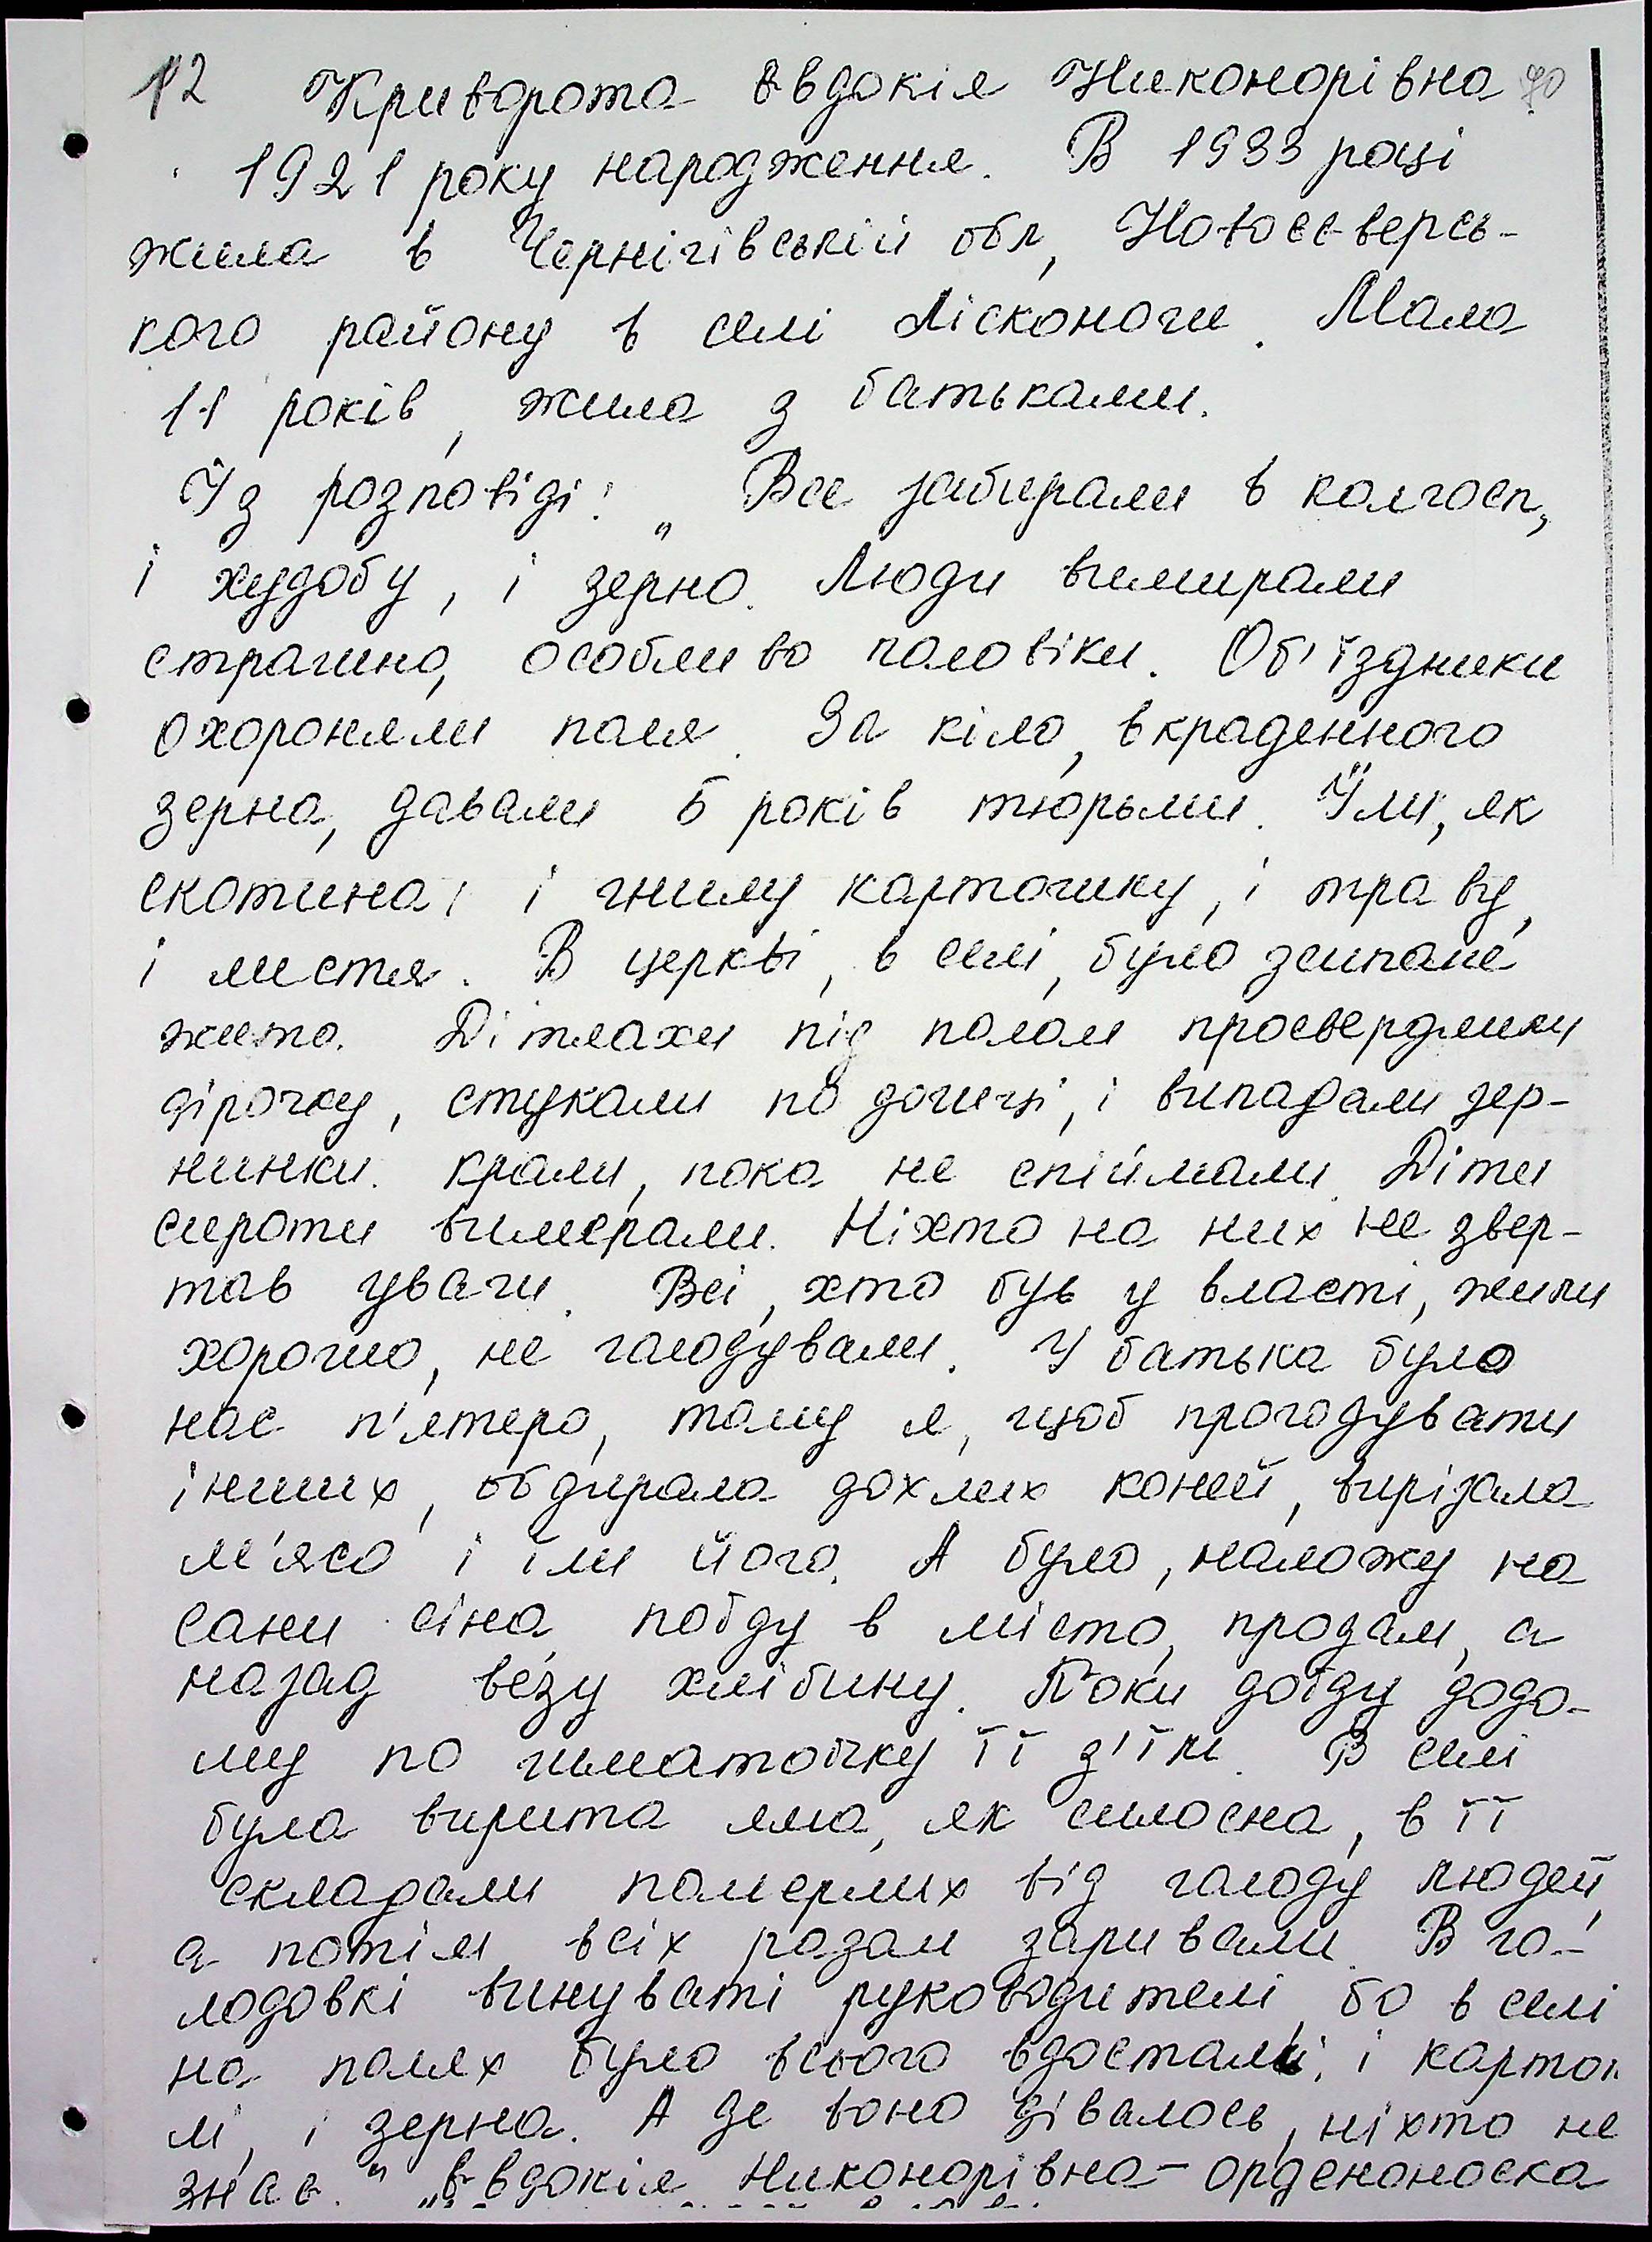 12 Криворота Євдокія Никонорівна 70
1921 року народження. В 1933 році
жила в Чернігівській обл, Новосєверсь-
кого району в селі Лісконоги. Мала
11 років, жила з батьками.
Із розповіді: „ Все забирали в колгосп,
і худобу, і зерно. Люди вимирали
страшно, особливо чоловіки. Об'їздники
охороняли поля. За кіло, вкраденного
зерна, давали 5 років тюрьми. Їли, як
скотина, і гнилу картошку, і траву,
і листя. В церкві, в селі, було зсипане
жито. Дітлахи під полом просвердлили
дірочку, стукали по дошці, і випадали зер-
нинки. Крали, пока не спіймали. Діти
сироти вимерали. Ніхто на них не звер-
тав уваги. Всі, хто був у власті, жили
хорошо, не голодували. У батька було
нас п'ятеро, тому я, щоб прогодувати
інших, обдирала дохлих коней, вирізала
м'ясо і їли його. А було, наложу на
сани сіна, поїду в місто, продам, а
назад везу хлібину. Поки доїду додо-
му по шматочку її з'їм. В селі
була вирита яма, як силосна, в її
складали померлих від голоду людей,
а потім всіх разом заривали. В го-
лодовкі винуваті руководителі, бо в селі
на полях було всього вдосталь, і картоп
лі, і зерна. А де воно дівалось, ніхто не
знає." „Євдокія Никонорівна - орденоноска